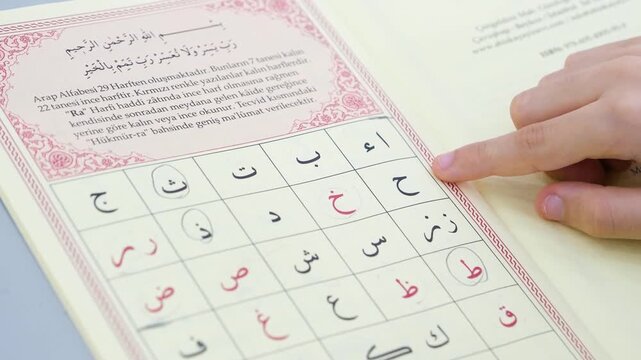 بِسْمِ اللهِ الرَّحْمٰنِ الرَّحِيمِ
رَبِّ يَسِّرْ وَلَا تُعَسِّرْ رَبِّ تَمِّمْ بِالْخَيْرِ
Arap Alfabesi 29 Harften oluşmaktadır. Bunların 7 tanesi kalın
22 tanesi ince harftir. Kırmızı renkle yazılanlar kalın harflerdir
"Ra" Harfi haddi zâtında ince harf olmasına rağmen
kendisinde sonradan meydana gelen kâide gereğince
yerine göre kalın veya ince okunur. Tecvid kısmındaki
"Hükmür-ra" bahsinde geniş ma'lûmat verilecektir.
ا ء ب ت ث ج
ح خ د ذ ر ر
ز ز س ش ص ض
ط ظ ع غ ف
ق ك ك